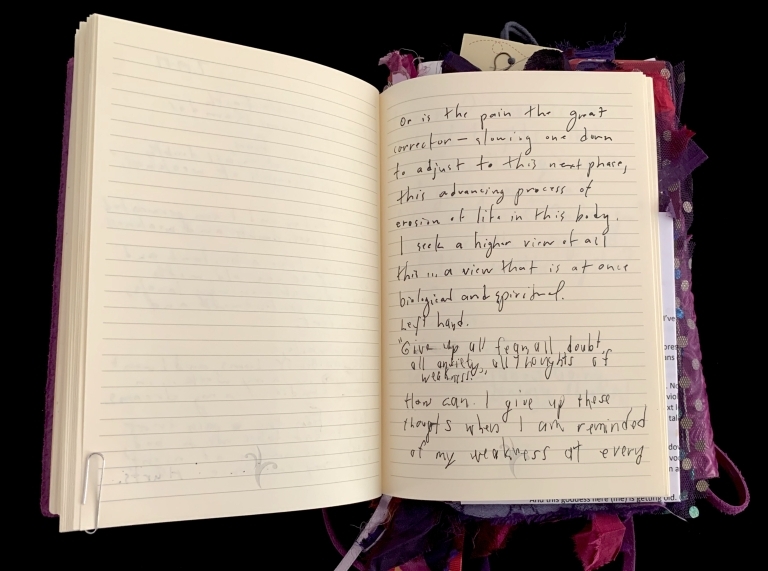 Or is the pain the great
corrector — slowing one down
to adjust to this next phase,
this advancing process of
erosion of life in this body.
I seek a higher view of all
this ... a view that is at once
biological and spiritual.
Left hand.
"Give up all fear, all doubt,
all anxiety, all thoughts of
weakness."
How can I give up these
thoughts when I am reminded
of my weakness at every
I've
And this goddess here (me) is getting old.